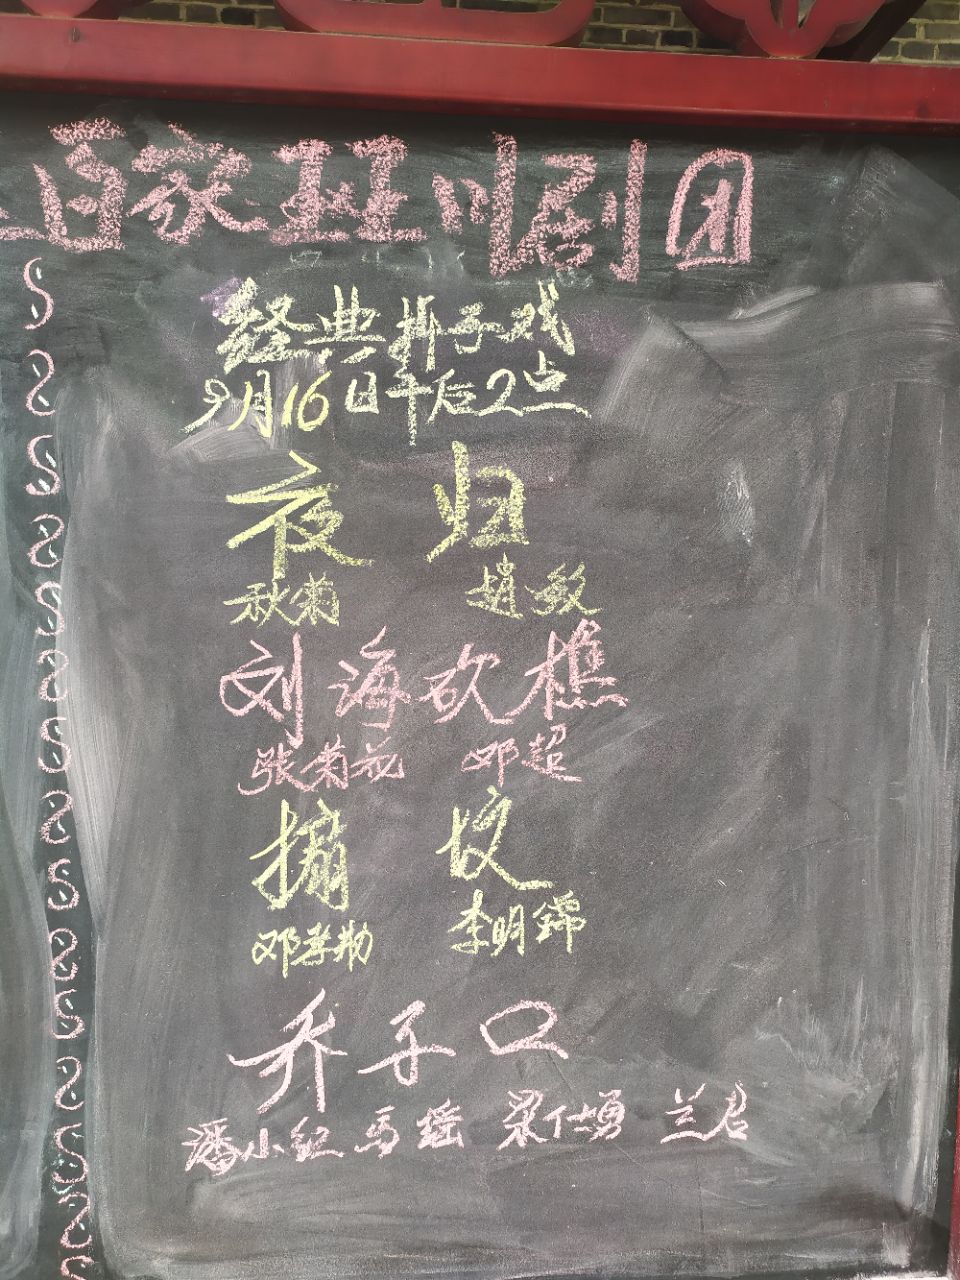 百家班川剧团
经典折子戏
9月16日午后2点
夜 归
秋菊 赵敏
刘海砍樵
张菊花 邓超
搧 坟
邓孝勋 李明錦
乔子口
潘小红 马瑶 梁仁勇 兰君